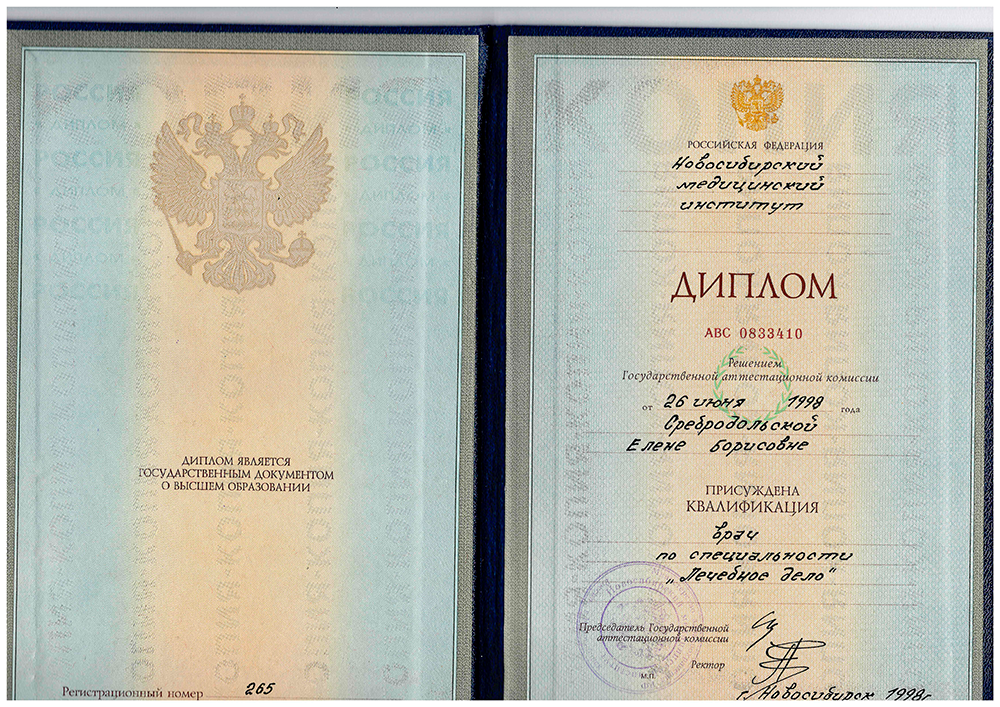 ДИПЛОМ ЯВЛЯЕТСЯ
ГОСУДАРСТВЕННЫМ ДОКУМЕНТОМ
О ВЫСШЕМ ОБРАЗОВАНИИ
Регистрационный номер 265
РОССИЙСКАЯ ФЕДЕРАЦИЯ
Новосибирский
медицинский
институт
ДИПЛОМ
АВС 0833410
Решением
Государственной аттестационной комиссии
от 26 июня 1998 года
Сребродольской
Елене Борисовне
ПРИСУЖДЕНА
КВАЛИФИКАЦИЯ
врач
по специальности
„Лечебное дело"
Председатель Государственной
аттестационной комиссии
Ректор
М.П.
г. Новосибирск 1998г